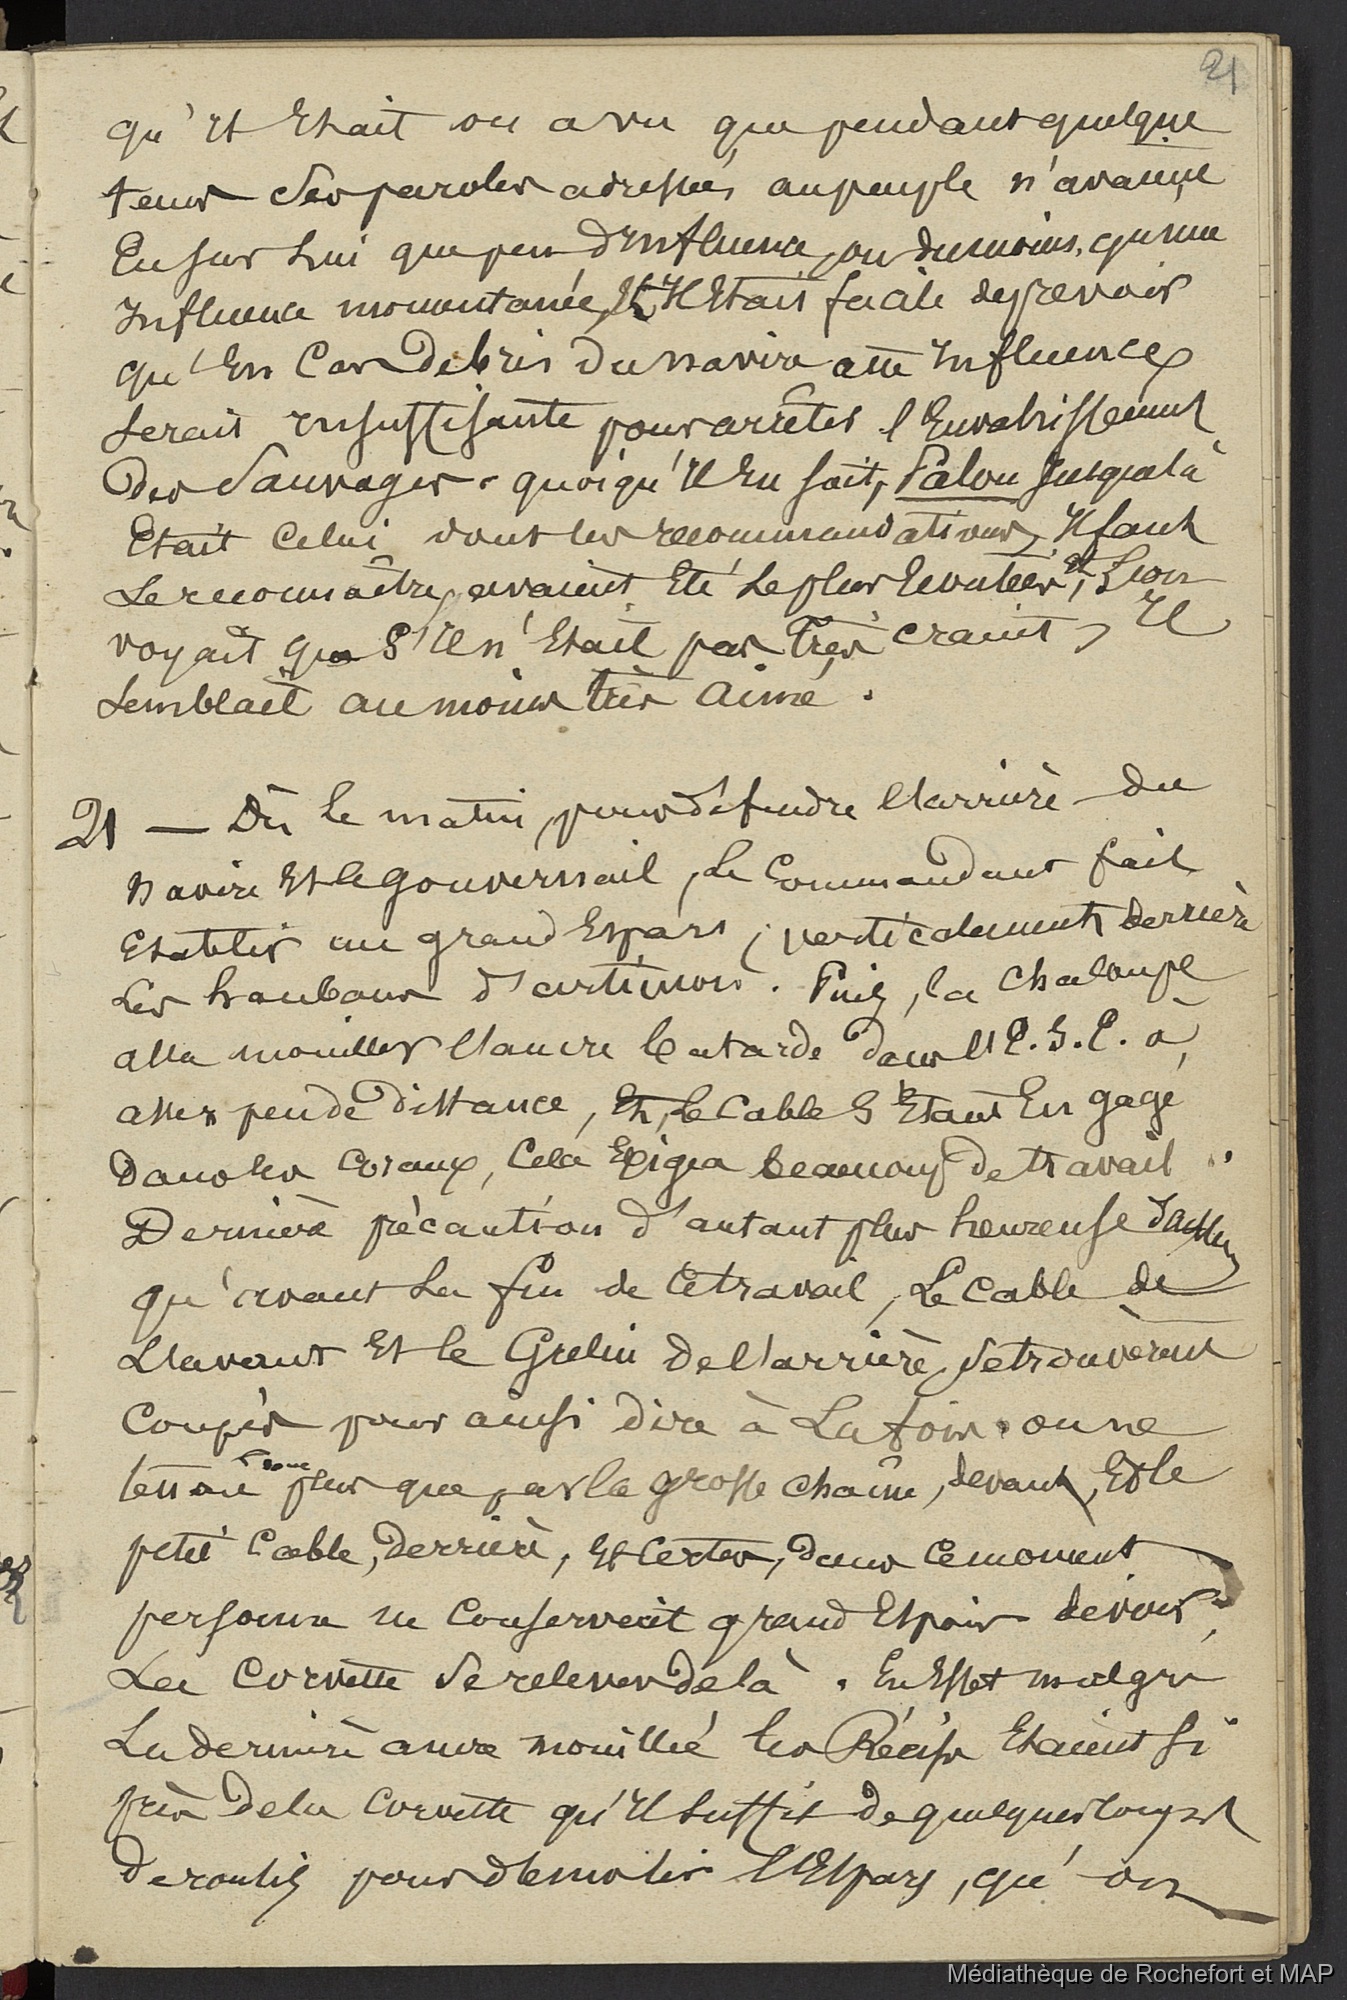 21
qu'Il Etait on a vu que pendant quelque
tems Ses paroles adressées au peuple n'avaient
Eu sur Lui que peu d'Influence, ou du moins, qu'une
Influence momentanée, Et Il Etait facile de prevoir
qu'En Cas Debris Du navire cette Influence
Serait insuffisante pour arrêter l'Envahissement
Des Sauvages. quoiqu'Il En soit, Palou Jusque là
Etait Celui dont les recommandations, Il faut
Le reconnaître, avaient Eté Le plus Ecoutées, et L'on
voyait que S'Il n'Etait pas très craint, Il
Semblait au moins très aimé.
21 — Dès le matin, pour défendre l'arrière du
navire Et le gouvernail, Le Commandant fait
Etablir un grand Espars, verticalement derrière
Les haubans d'artimon. Puis, la chaloupe
alla mouiller l'ancre batarde dans l'E.S.E. à
assez peu de Distance, Et, le Cable S'Etant Engagé
Dans les Coraux, Cela Exigea beaucoup de travail.
Dernière précaution d'autant plus heureuse
qu'avant La fin de ce travail, Le Cable de
L'avant Et le Grelin de l'arrière, se trouvèrent
Coupés pour ainsi dire à La fois. on ne
tenait donc plus que par la grosse chaîne, devant, Et le
petit Cable, Derrière, Et Certes, dans ce moment
personne ne Conservait grand Espoir de voir,
La Corvette Se relever de là. En Effet malgré
La dernière ancre mouillée les Récifs Etaient Si
près De la Corvette qu'Il suffit de quelques coups
De roulis pour démolir l'Espars, qu'on
Médiathèque de Rochefort et MAP